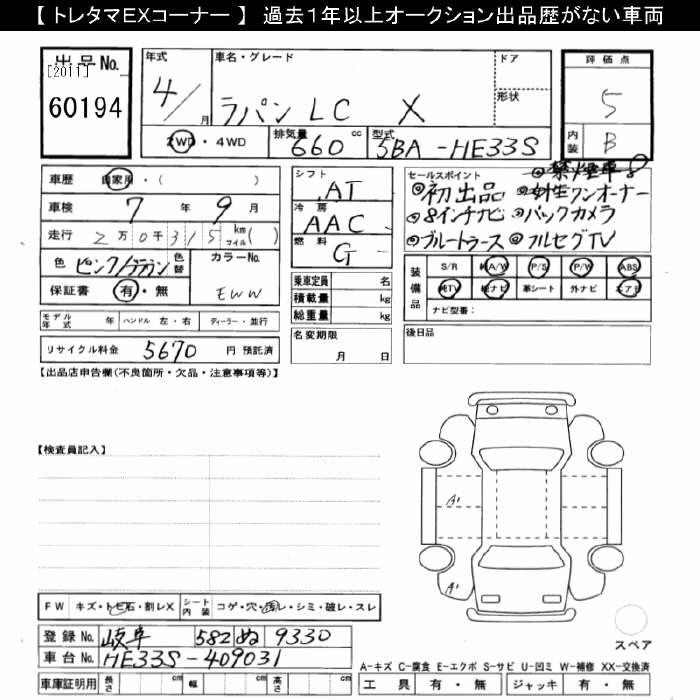 【 トレタマEXコーナー 】 過去１年以上オークション出品歴がない車両
出品No.
[2011]
60194
年式 4/ 月
車名・グレード ラパン LC X
ドア
形状
2WD・4WD
排気量 660 cc
型式 5BA-HE33S
評価点 5
内装 B
車歴 自家用・( )
車検 7 年 9 月
走行 2万0千315 km マイル( )
色 ピンク/ブラウン 色替
カラーNo. EWW
保証書 有・無
シフト AT
冷房 AAC
燃料 G
乗車定員 名
積載量 kg
総重量 kg
セールスポイント ◎禁煙車
◎初出品 ◎女性ワンオーナー
◎8インチナビ ◎バックカメラ
◎ブルートゥース ◎フルセグTV
装備品
S/R 純A/W P/S P/W ABS
純TV 純ナビ 革シート 外ナビ エアB
ナビ型番：
モデル年式 年 ハンドル 左・右 ディーラー・並行
名変期限 月 日
後日品
リサイクル料金 5670 円 預託済
【出品店申告欄(不良箇所・欠品・注意事項等)】
【検査員記入】
A1
A1
FW キズ・トビ石・割レX
シート内装 コゲ・穴・凹レ・シミ・破レ・スレ
スペア
登録No. 岐阜 582 ぬ 9330
車台No. HE33S-409031
A-キズ C-腐食 E-エクボ S-サビ U-凹ミ W-補修 XX-交換済
車庫証明用 長さ cm 幅 cm 高さ cm
工具 有・無 ジャッキ 有・無